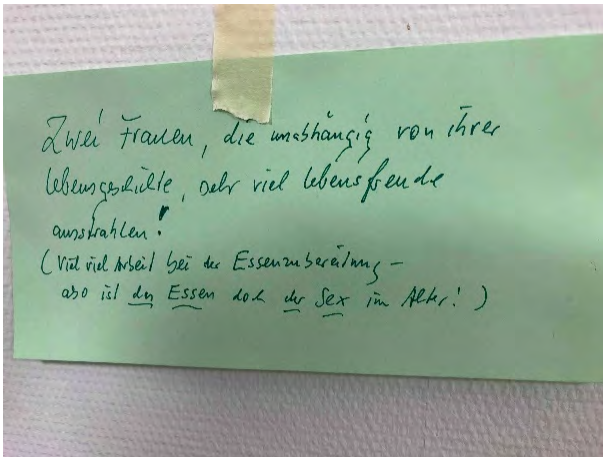 Zwei Frauen, die unabhängig von ihrer
Lebensgeschichte, sehr viel Lebensfreude
ausstrahlen!
(Viel viel Arbeit bei der Essenzubereitung –
also ist das Essen doch der Sex im Alter!)